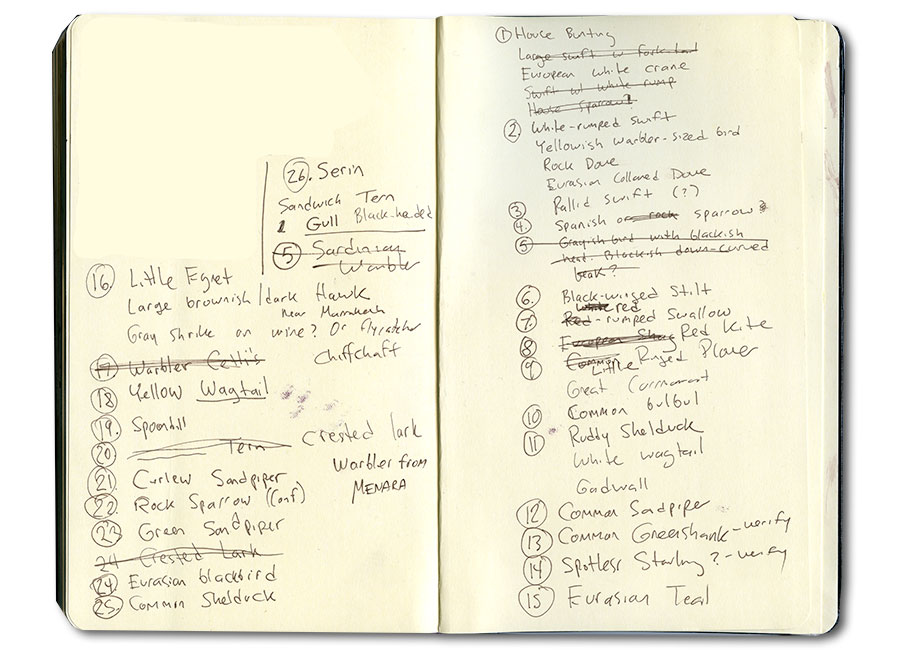 26. Serin
Sandwich Tern
1 Gull Black-headed
5 Sardinian
Warbler
16 Little Egret
Large brownish/dark Hawk
near Marrakech
Gray shrike on wire? Or flycatcher
Chiffchaff
17 Warbler Cetti's
18 Yellow Wagtail
19. Spoonbill
20 Tern
Crested lark
Warbler from
MENARA
21 Curlew Sandpiper
22 Rock Sparrow (Conf)
23 Green Sandpiper
24 Crested Lark
24. Eurasian blackbird
25. Common Shelduck
1 House Bunting
Large swift w fork tail
European white crane
Swift w/ white rump
House Sparrow?
2. White-rumped swift
Yellowish warbler-sized bird
Rock Dove
Eurasian Collared Dove
3 Pallid swift (?)
4. Spanish or rock sparrow?
5 Grayish bird with blackish
head. Blackish down-curved
beak?
6. Black-winged Stilt
white red
7. Red-rumped Swallow
8 European Shag Red Kite
9 Common Little Ringed Plover
Great Cormorant
10 Common bulbul
11 Ruddy Shelduck
White wagtail
Gadwall
12 Common Sandpiper
13 Common Greenshank - verify
14 Spotless Starling? - verify
15 Eurasian Teal